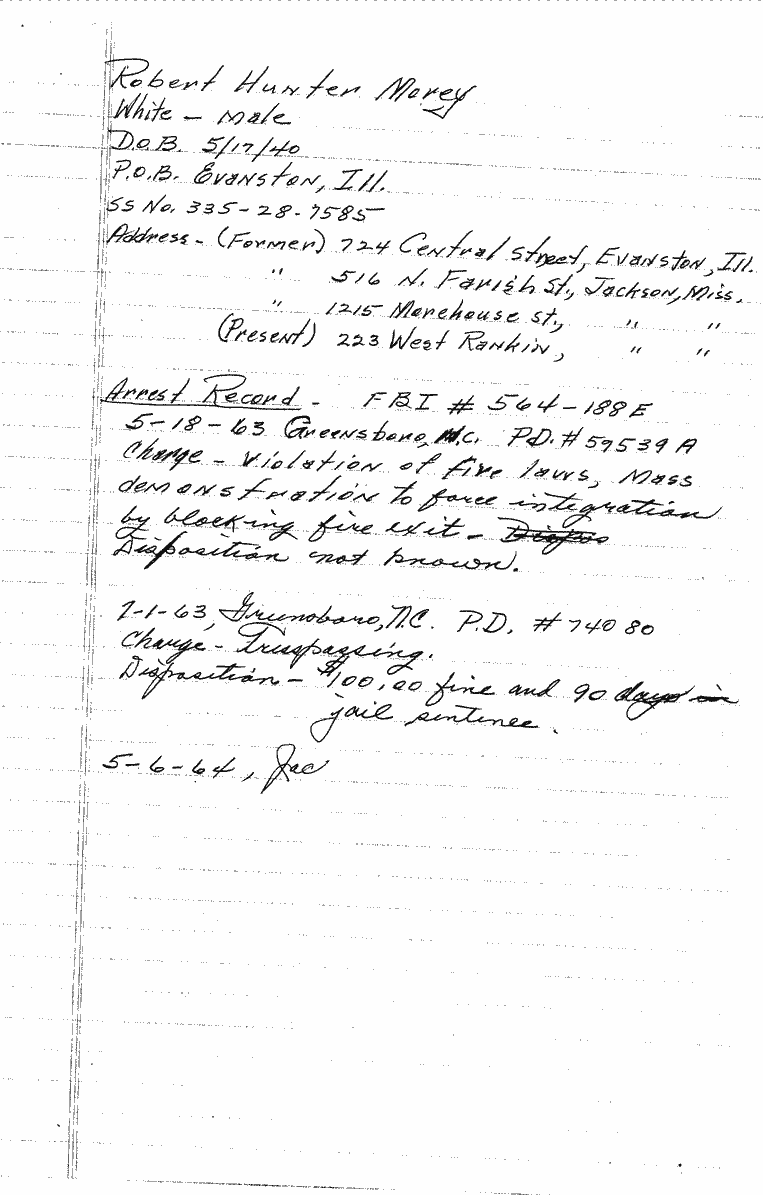 Robert Hunter Morey
White - Male
D.O.B. 5/17/40
P.O.B. Evanston, Ill.
SS No. 335-28-7585
Address - (Former) 724 Central Street, Evanston, Ill.
" 516 N. Farish St., Jackson, Miss.
" 1215 Morehouse St., " "
(Present) 223 West Rankin, " "
Arrest Record - FBI # 564-188E
5-18-63 Greensboro, N.C. P.D. # 59539A
Charge - Violation of fire laws, Mass
demonstration to force integration
by blocking fire exit -
Disposition not known.
7-1-63, Greensboro, N.C. P.D. # 74080
Charge - Trespassing.
Disposition - $100.00 fine and 90 days in
jail sentence.
5-6-64, Jac